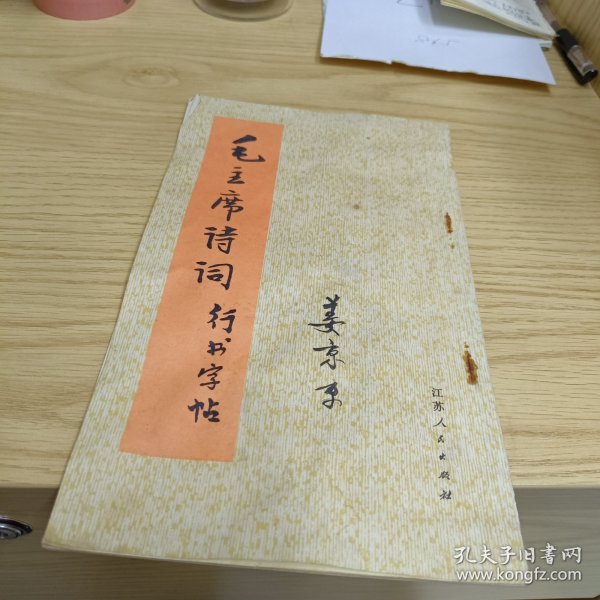 毛主席诗词
行书字帖
姜京
江苏人民出版社
孔夫子旧书网
www.kongfz.com